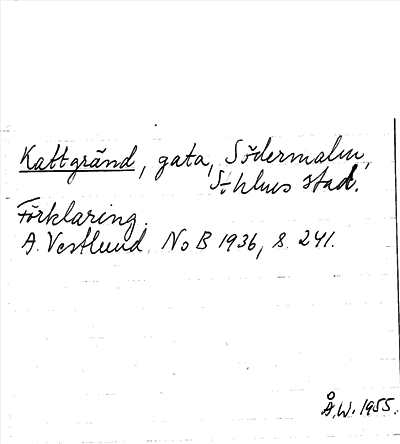 Kattgränd, gata, Södermalm,
Sthlms stad.
Förklaring.
A. Vestlund NoB 1936, s. 241.
Å.W. 1955.